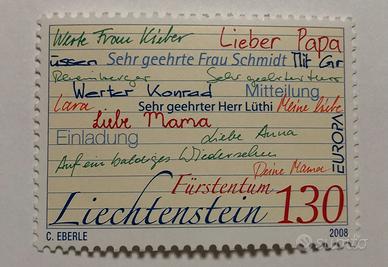 Werte Frau Kieber Lieber Papa
üssen Sehr geehrte Frau Schmidt Mit Gr
Sehr geehrter Herr
Werter Konrad Mitteilung
Lara Sehr geehrter Herr Lüthi Meine liebe
Liebe Mama
Einladung Liebe Anna
Auf ein baldiges Wiedersehen
Deine Mama
EUROPA
Fürstentum
Liechtenstein 130
C. EBERLE 2008
subito